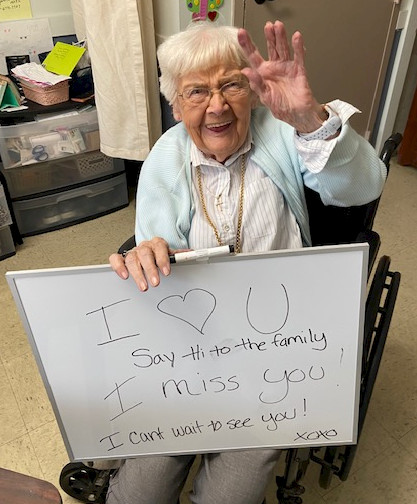 I ♡ U
Say Hi to the family
I miss you!
I cant wait to see you!
xoxo